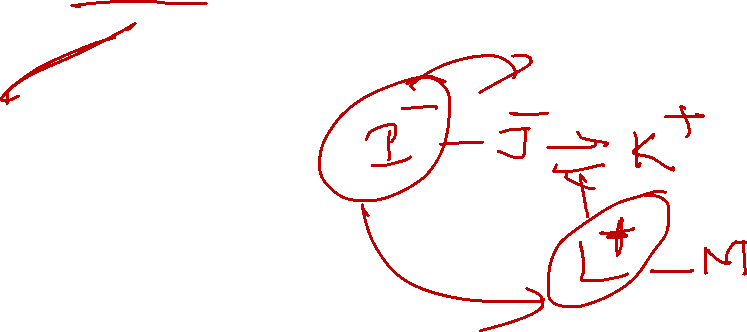 I⁻ - J⁻ ⇌ K⁺
L⁺ - M